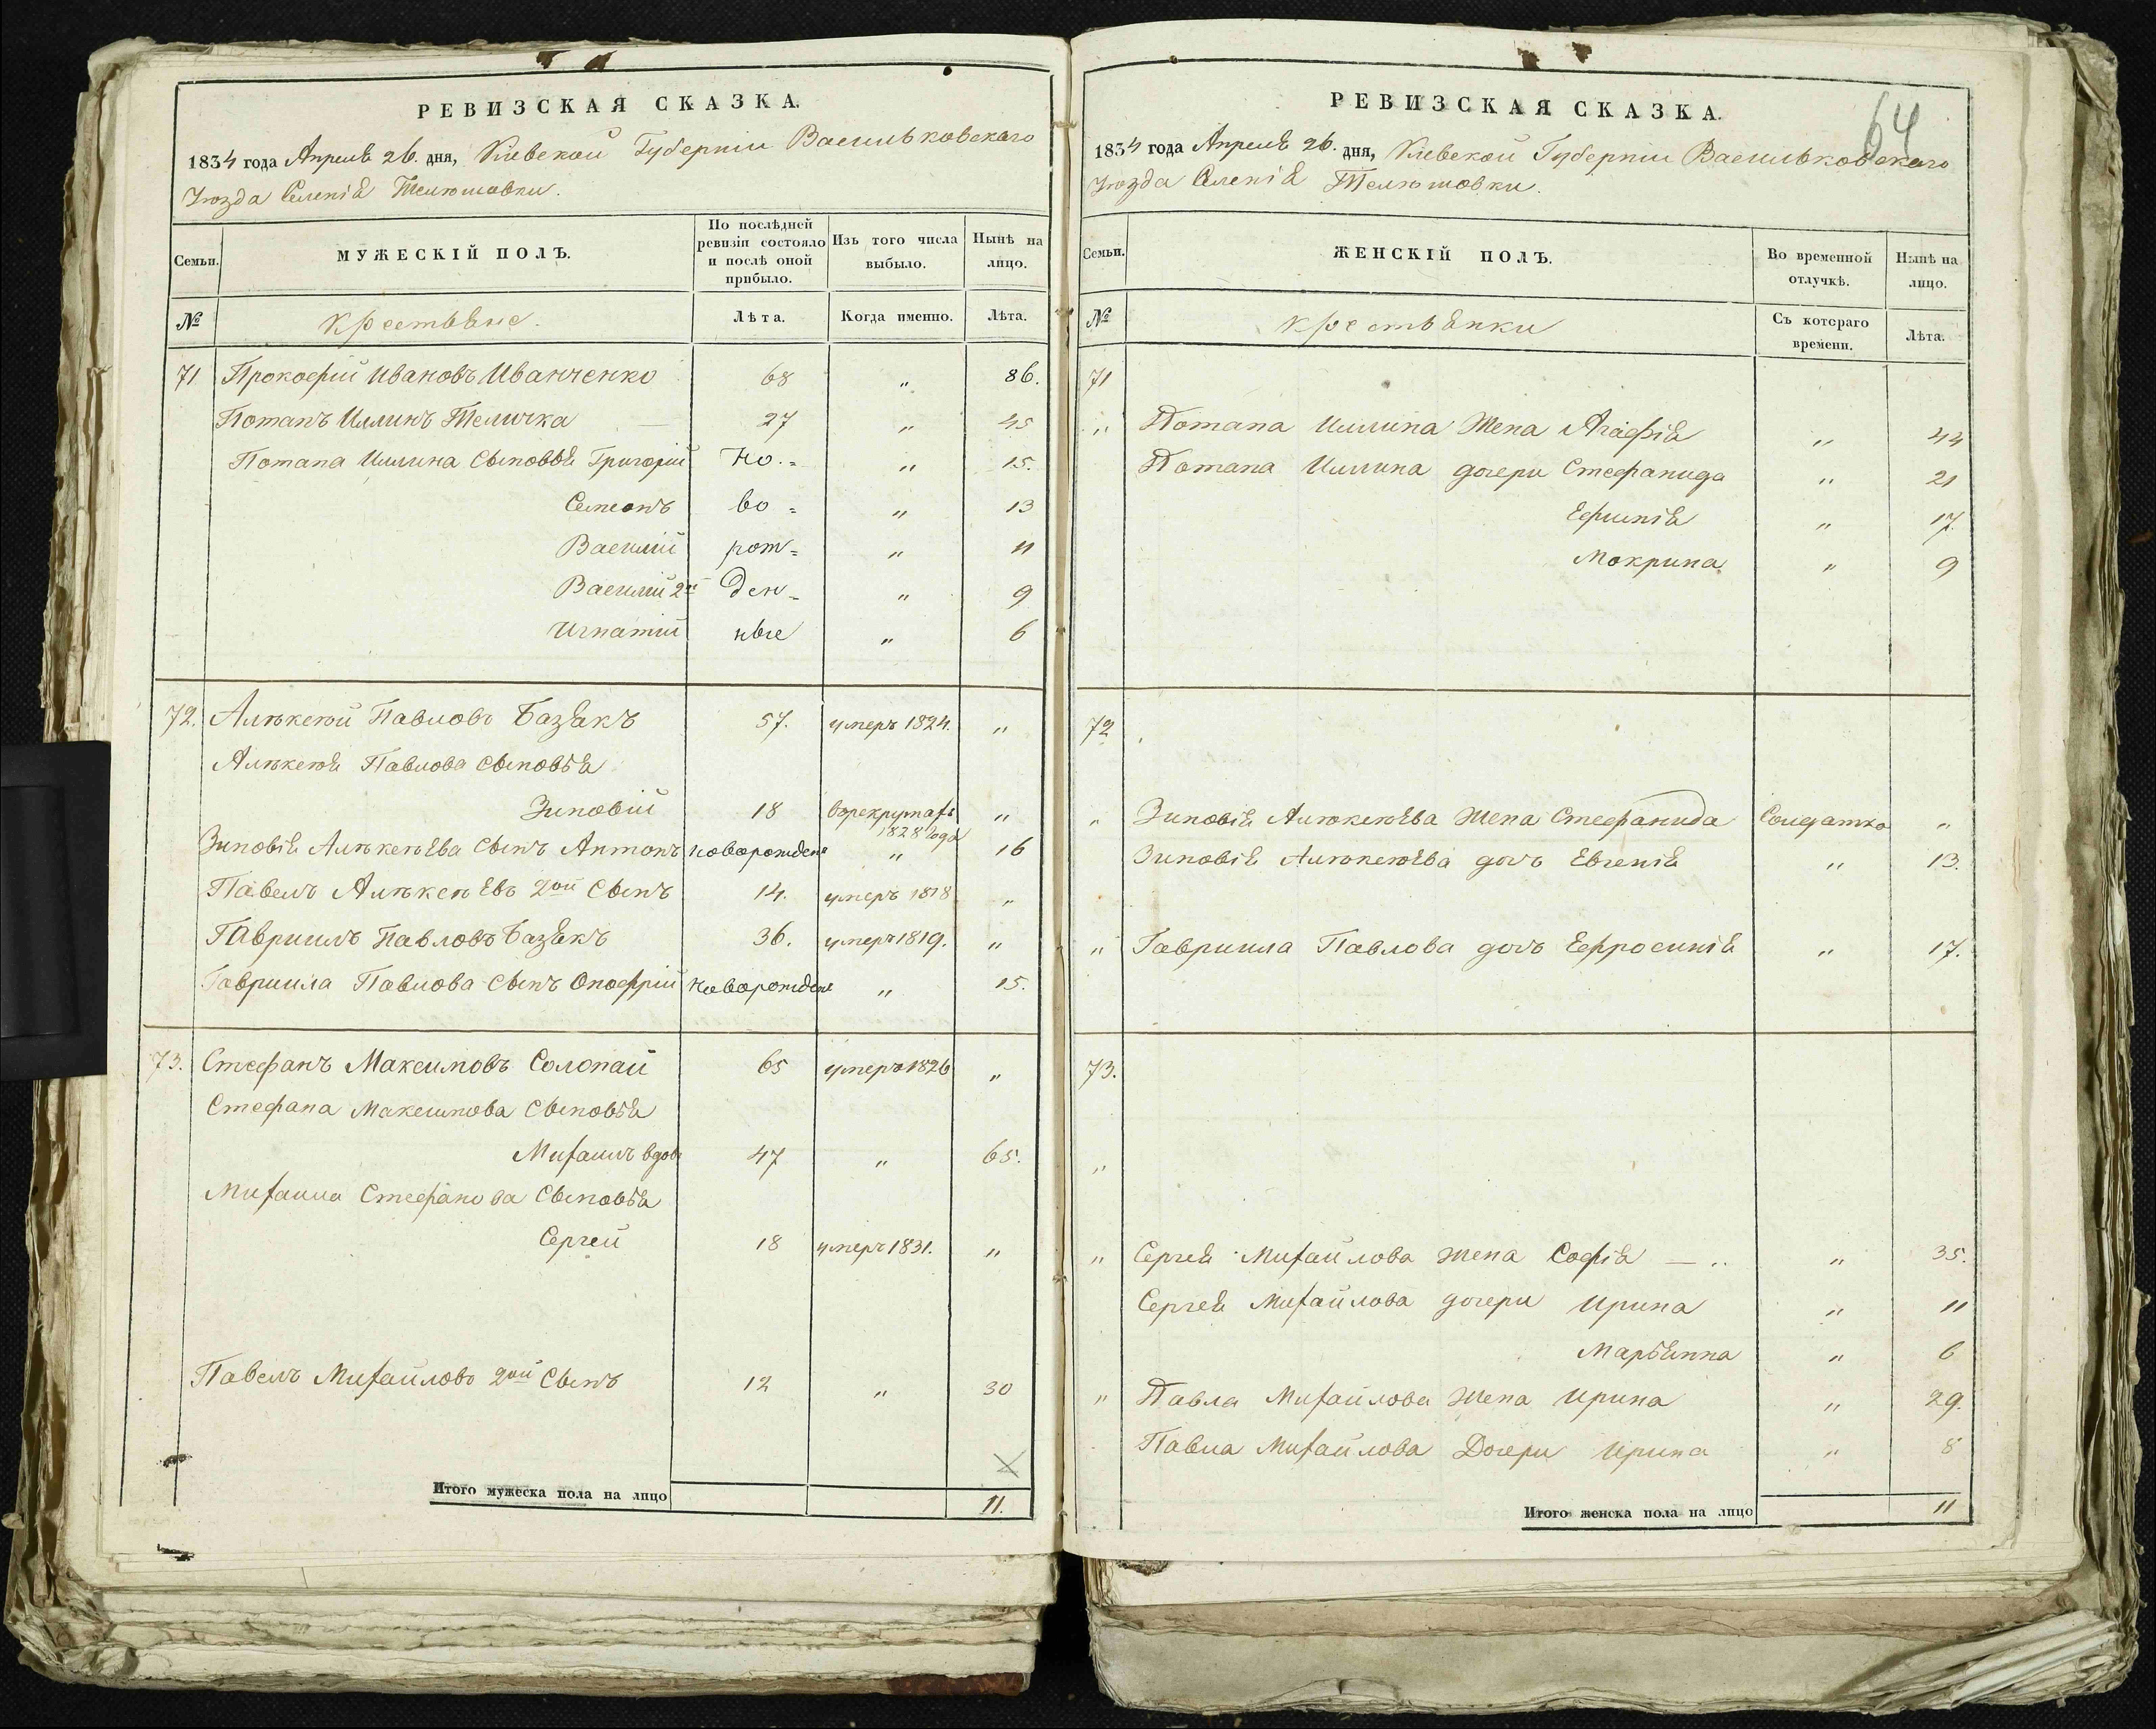 РЕВИЗСКАЯ СКАЗКА.
1834 года Апреля 26. дня, Киевской Губернiи Васильковскаго
Уѣзда Селенiя Телѣшовки.
Семьи. МУЖЕСКIЙ ПОЛЪ. По послѣдней ревизiи состояло и послѣ оной прибыло. Изъ того числа выбыло. Нынѣ на лицо.
№ Крестьяне. Лѣта. Когда именно. Лѣта.
71 Прокофiй Ивановъ Иванченко 68 " 86.
Потапъ Иллинъ Теличка 27 " 45
Потапа Иллина сыновья Григорiй Но.= " 15.
Семеонъ во = " 13
Василiй рож= " 11
Василiй 2й ден= " 9
Игнатiй ные " 6
72. Алѣксѣй Павловъ Базякъ 57. умеръ 1824. "
Алѣксѣя Павлова сыновья
Зиновiй 18 врекрутахъ 1828 года "
Зиновiя Алѣксѣева сынъ Антонъ новорожден " 16
Павелъ Алѣксѣевъ 2ой сынъ 14. умеръ 1818 "
Гавриилъ Павловъ Базякъ 36. умеръ 1819. "
Гавриила Павлова сынъ Онофрiй новорожден " 15.
73. Стефанъ Максимовъ Солопай 65 умеръ 1826 "
Стефана Максимова сыновья
Михаилъ вдов 47 " 65.
Михаила Стефанова сыновья
Сергей 18 умеръ 1831. "
Павелъ Михайловъ 2ой сынъ 12 " 30
Итого мужеска пола на лицо 11.
64
РЕВИЗСКАЯ СКАЗКА.
1834 года Апреля 26. дня, Киевской Губернiи Васильковскаго
Уѣзда Селенiя Телѣшовки.
Семьи. ЖЕНСКIЙ ПОЛЪ. Во временной отлучкѣ. Нынѣ на лицо.
№ Крестьянки Съ котораго времени. Лѣта.
71
" Потапа Иллина жена Агафiя " 44
Потапа Иллина дочери Стефанида " 21
Ефимiя " 17.
Мокрина " 9
72
" Зиновiя Алѣксѣева жена Стефанида Солдатка "
Зиновiя Алѣксѣева дочь Евгенiя " 13.
" Гавриила Павлова дочь Ефросинiя " 17.
73.
"
" Сергея Михайлова жена Софiя — " " 35.
Сергея Михайлова дочери Ирина " 11
Марьянна " 6
" Павла Михайлова жена Ирина " 29.
Павла Михайлова Дочери Ирина " 8
Итого женска пола на лицо 11